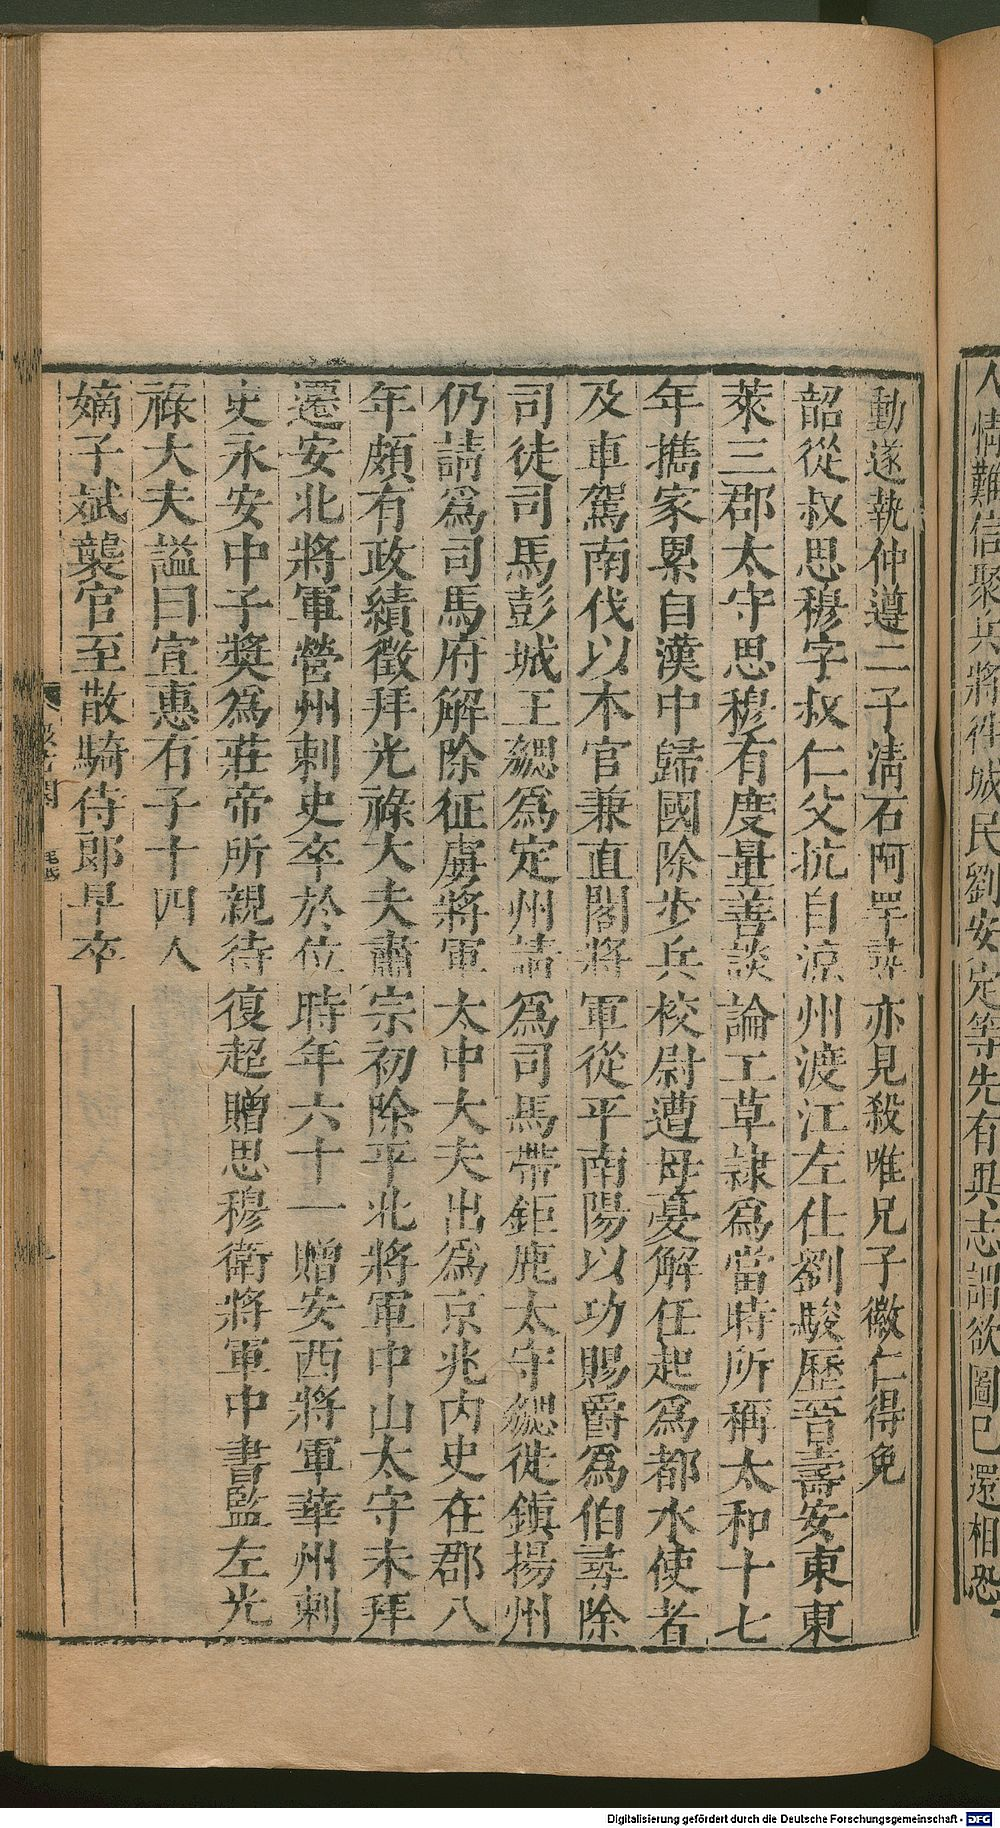 人情難信聚兵將得城民劉安定等先有異志謂欲圖己還相恐
動遂執仲遵二子清石阿罕尋亦見殺唯兄子徽仁得免
韶從叔思穆字叔仁父抗自涼州渡江左仕劉駿歷晉壽安東東
萊三郡太守思穆有度量善談論工草隷爲當時所稱太和十七
年擕家累自漢中歸國除步兵校尉遭母憂解任起爲都水使者
及車駕南伐以本官兼直閣將軍從平南陽以功賜爵爲伯尋除
司徒司馬彭城王勰爲定州請爲司馬帶鉅鹿太守勰徙鎮揚州
仍請爲司馬府解除征虜將軍太中大夫出爲京兆內史在郡八
年頗有政績徵拜光祿大夫肅宗初除平北將軍中山太守未拜
遷安北將軍營州刺史卒於位時年六十一贈安西將軍華州刺
史永安中子奬爲莊帝所親待復超贈思穆衞將軍中書監左光
祿大夫謚曰宣惠有子十四人
嫡子斌襲官至散騎侍郎早卒
Digitalisierung gefördert durch die Deutsche Forschungsgemeinschaft - DFG